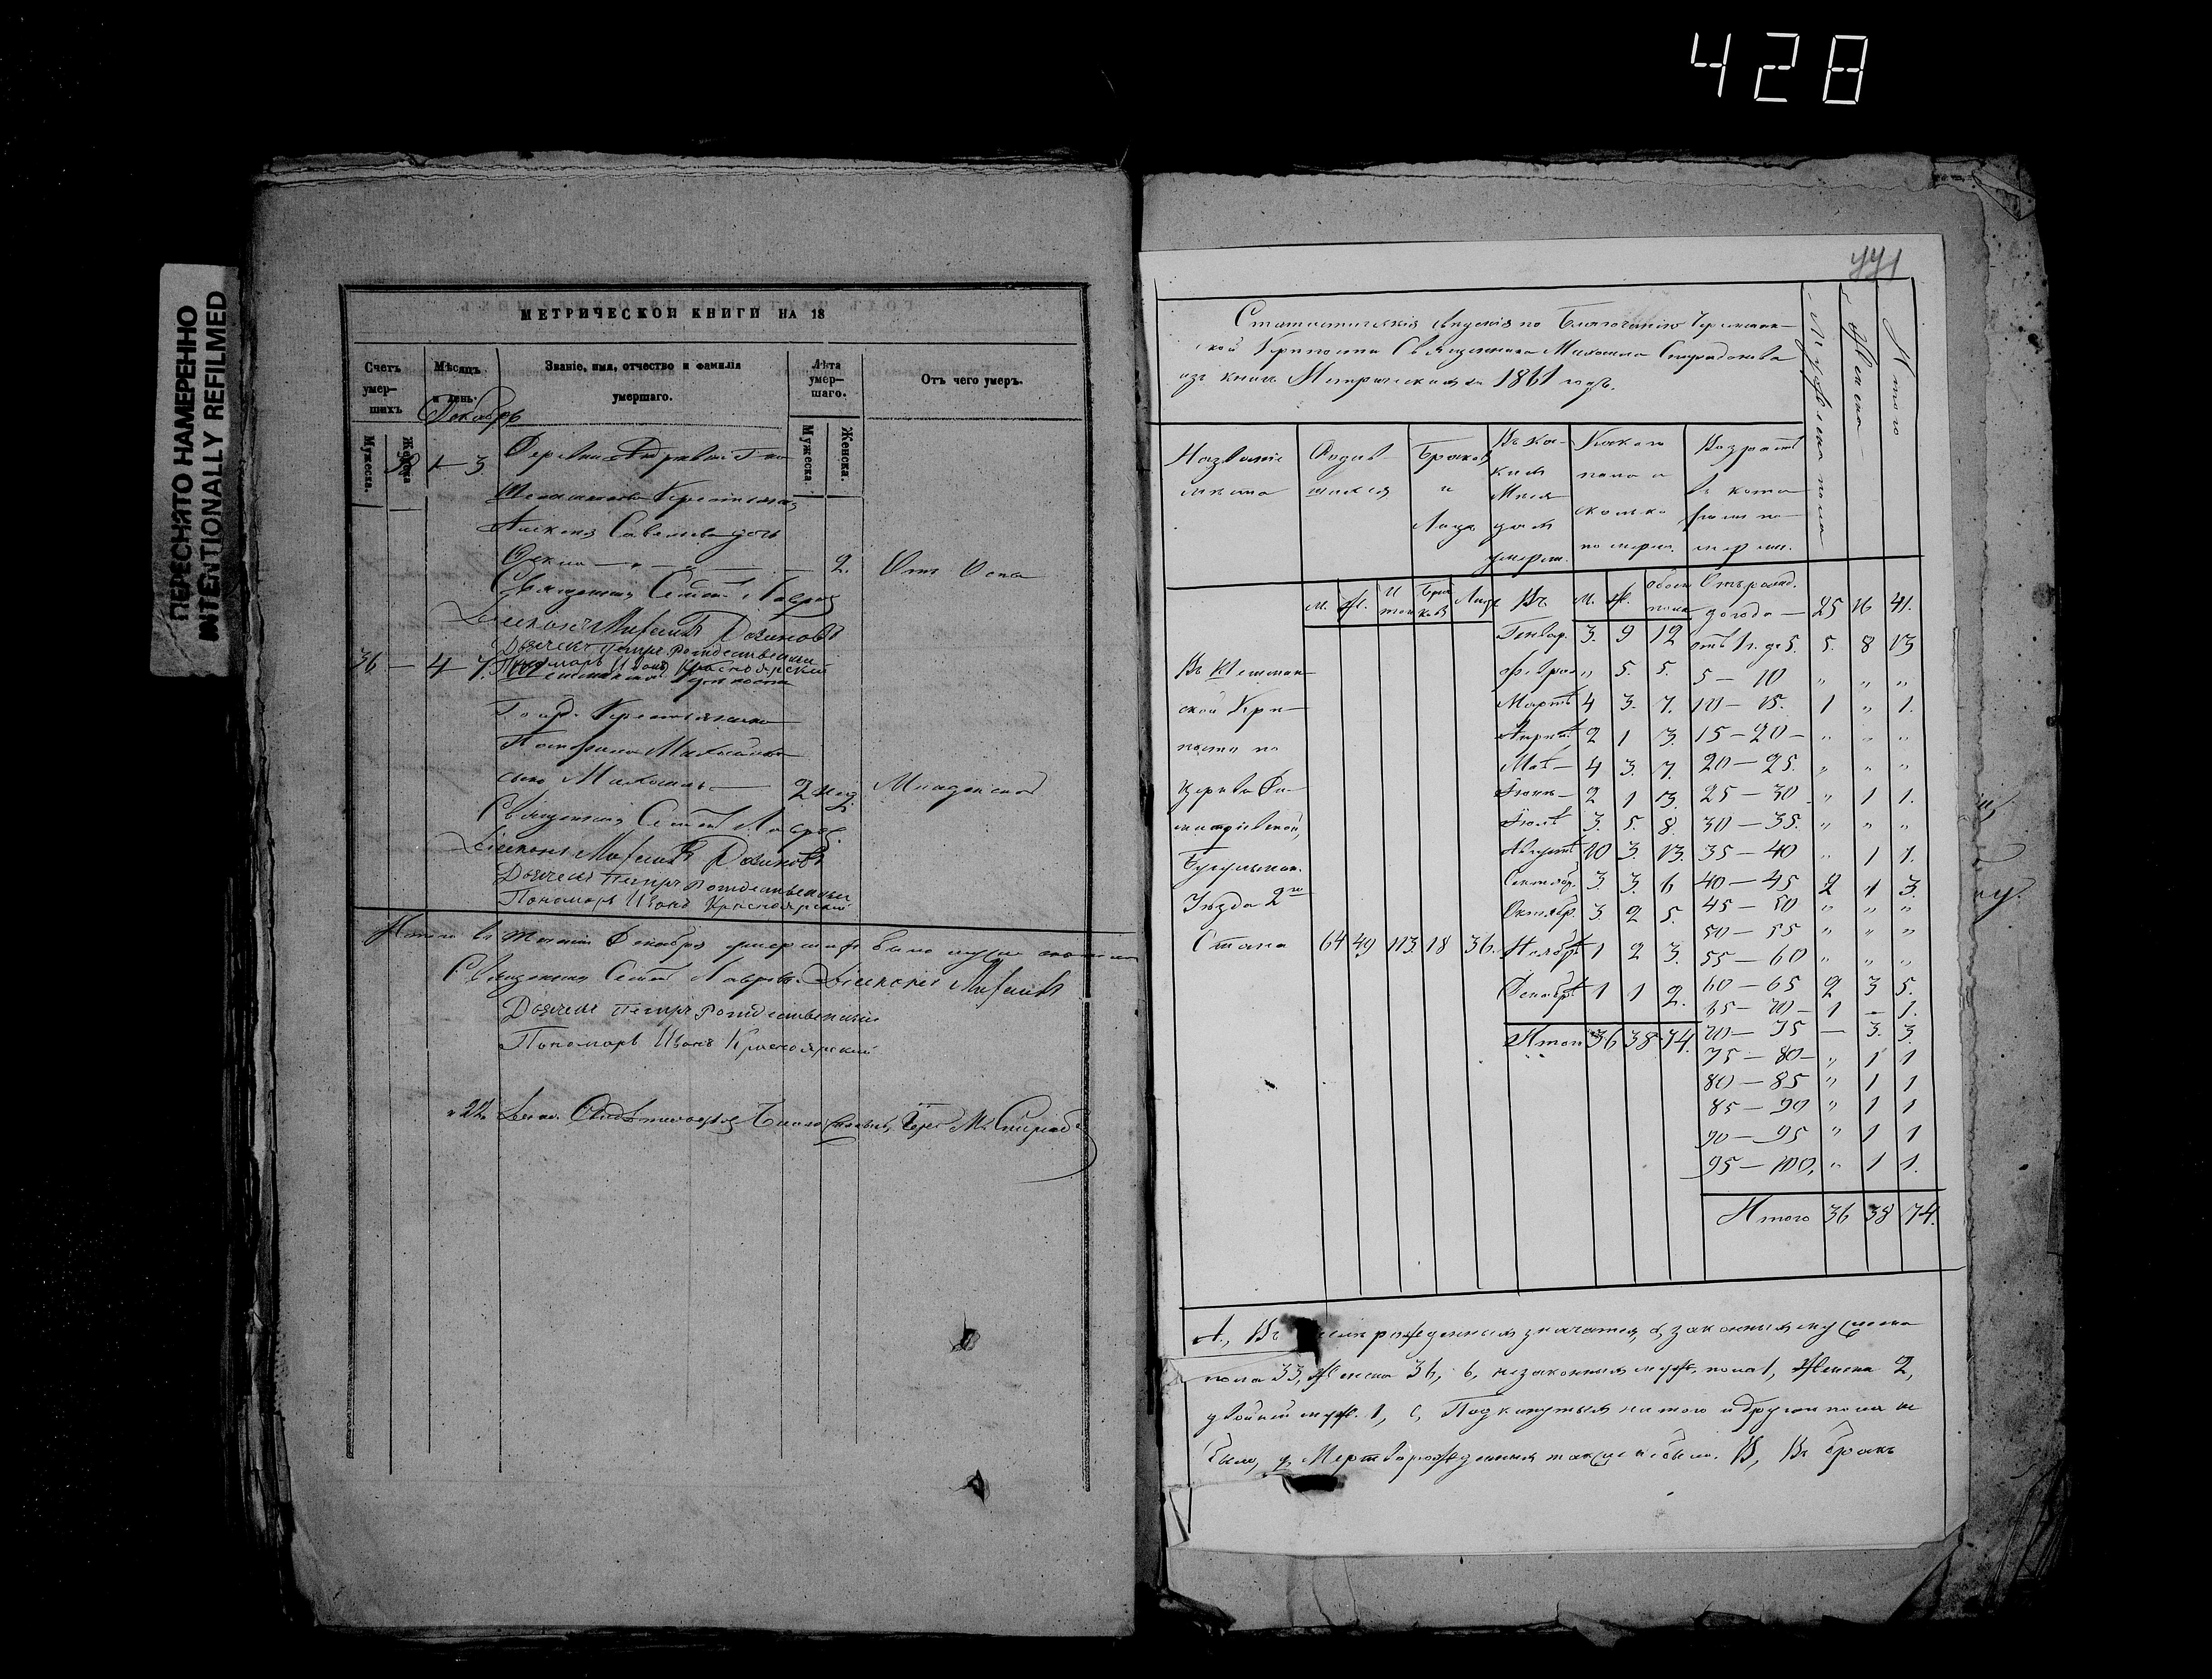 428
ПЕРЕСНЯТО НАМЕРЕННО
INTENTIONALLY REFILMED
МЕТРИЧЕСКОЙ КНИГИ НА 18
Счетъ умер-шихъ
Мѣсяцъ и день.
Званіе, имя, отчество и фамилія умершаго.
Лѣта умер-шаго.
Отъ чего умеръ.
Мужеска.
Женска
Мужеска.
Женска.
Декабрь
1 3
Деревни
Крестьянина
Алексѣя Савельева дочь
2. Отъ Оспы
Священникъ Лавровъ
Діаконъ
Дьячекъ Петръ Рождественскій
Пономарь Иванъ Красноярскій
36 — 4 7.
Госуд. Крестьянина
сынъ Михаилъ — 2 нед. Младенской
Священникъ Лавровъ
Діаконъ
Дьячекъ Петръ Рождественскій
Пономарь Иванъ Красноярскій
Итого въ Декабрѣ умершихъ было
Священникъ Лавровъ. Діаконъ
Дьячекъ Петръ Рождественскій
Пономарь Иванъ Красноярскій
441
Статистическія свѣденія по Благочинію Черемшан-
ской Крѣпости Священника Михаила Спиридонова
изъ книгъ Метрическихъ за 1861 годъ.
Мужеска пола
Женска
Итого
Названіе мѣста
Родив-шихся
Браковъ и Лицъ
Въ ка-кихъ Мѣся-цахъ умерли.
Какого пола и сколько померло.
Возрастъ въ кото-ромъ по-мерли.
м. ж. Итого Браковъ Лицъ Въ м. ж. обоего пола Отъ рожд. до года — 25 16 41.
Генвар. 3. 9 12 отъ 1 г. до 5. 5. 8 13
Въ Шешмин- Феврал „ 5. 5. 5 — 10 „ „ „
ской Крѣ- Мартѣ 4 3. 7. 10 — 15. 1 „ 1.
пости по Апрѣл. 2 1 3. 15 — 20 — „ „ „
Маѣ — 4 3. 7. 20 — 25. „ „ „
церкви Ди- Іюнѣ — 2 1 3. 25 — 30 „ 1 1.
митріевской, Іюлѣ 3. 5. 8. 30 — 35. „ „ „
Августѣ 10 3. 13. 35 — 40 „ 1 1.
Бугульмин. Сентябр. 3. 3. 6 40 — 45 2 1 3.
Уѣзда 2го Октябр. 3. 2 5. 45 — 50 „ „ „
50 — 55 „ „ „
Стана 64 49 113. 18 36. Ноябрѣ 1 2 3. 55 — 60 „ „ „
Декабрѣ 1 1 2. 60 — 65 2 3 5.
65 — 70 — 1 — 1.
Итого 36 38 74. 70 — 75 — 3. 3.
75 — 80 — „ 1 1
80 — 85 „ 1 1
85 — 90 „ 1 1
90 — 95 „ 1 1
95 — 100, „ 1 1.
Итого 36 38 74.
А., Въ рожденныхъ значатся, а, законныхъ мужеска
пола 33, Женска 36, б, незаконныхъ муж. пола 1, Женска 2,
двойней муж. 1, с, Подкинутыхъ ни того и другаго пола не
было, д, Мертворожденныхъ также не было. В, Въ бракъ